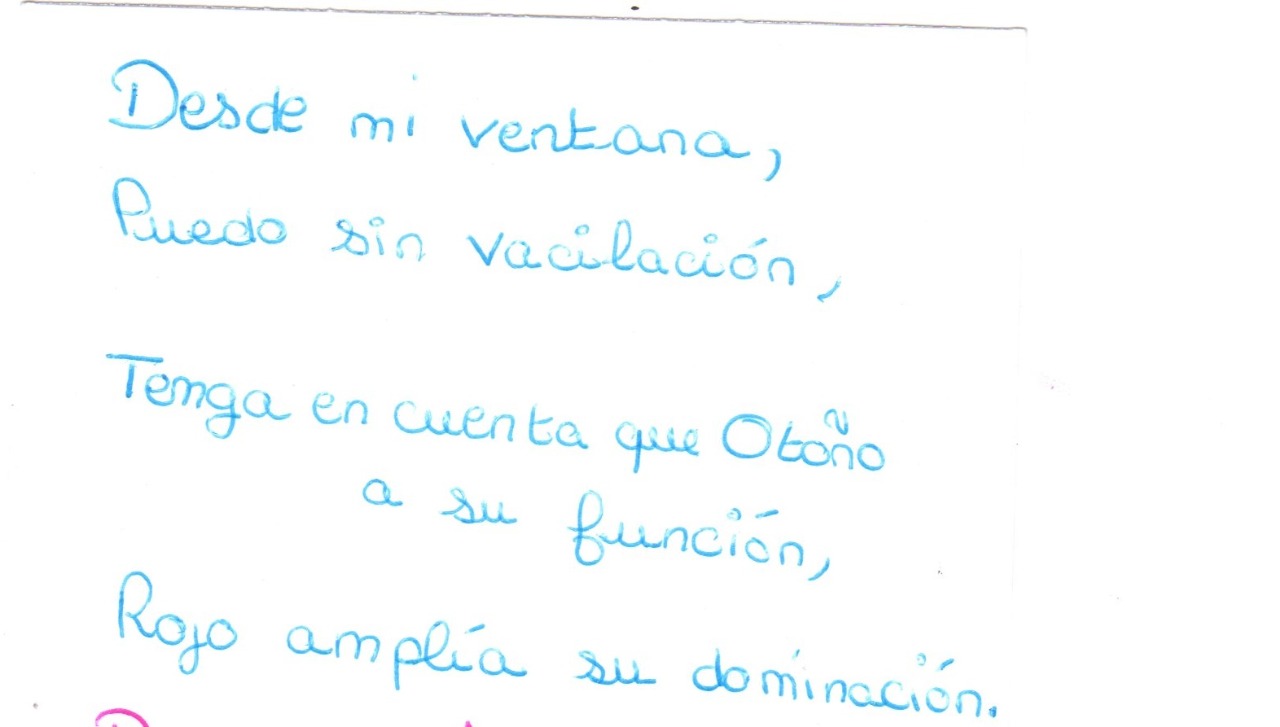 Desde mi ventana,
Puedo sin vacilación,
Tenga en cuenta que Otoño
a su función,
Rojo amplía su dominación.